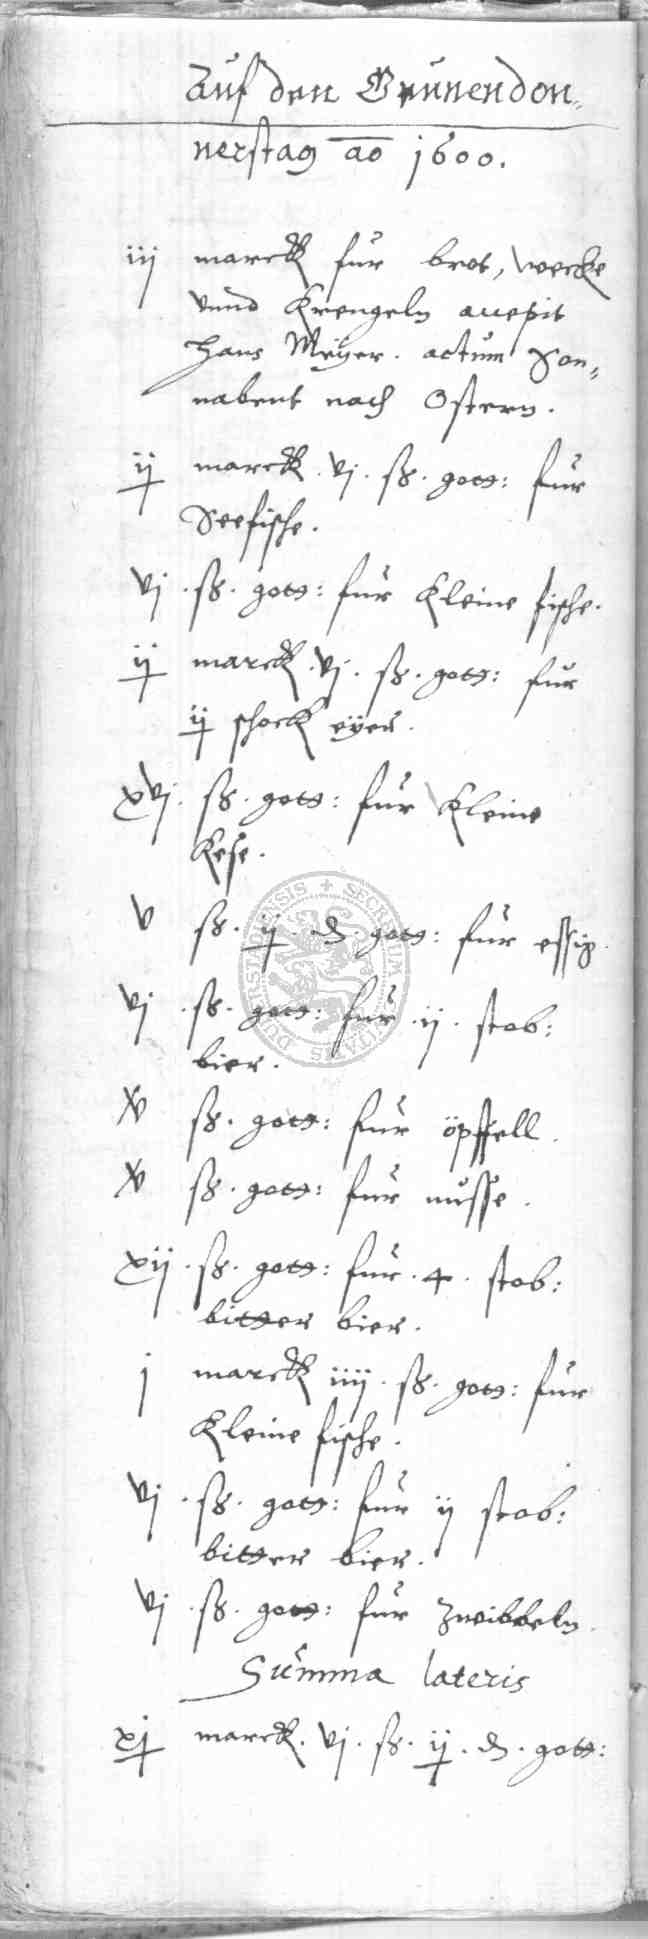 Auf den Grunendon„
nerstag ao 1600.
iij marck für brot, wecke
vnnd Krengeln accepit
Hans Meyer. actum Son„
nabent nach Ostern.
ij marck. vj. ß. gott: für
Seefische.
vj. ß. gott: für Kleine fische.
ij marck. vj. ß. gott: für
ij schock eyer.
xvj. ß. gott: für Kleine
Kese.
v ß. ij. d. gott: für essig.
vj. ß. gott: für. ij. stob:
bier.
xv ß. gott: für öpffell.
xv ß. gott: für nüsse.
xij. ß. gott: für. 4. stob:
bitter bier.
j marck iiij. ß. gott: für
Kleine fische.
vj. ß. gott: für ij stob:
bitter bier.
vj. ß. gott: für zwibbeln.
Summa lateris
xj marck. vj. ß. ij. d. gott: